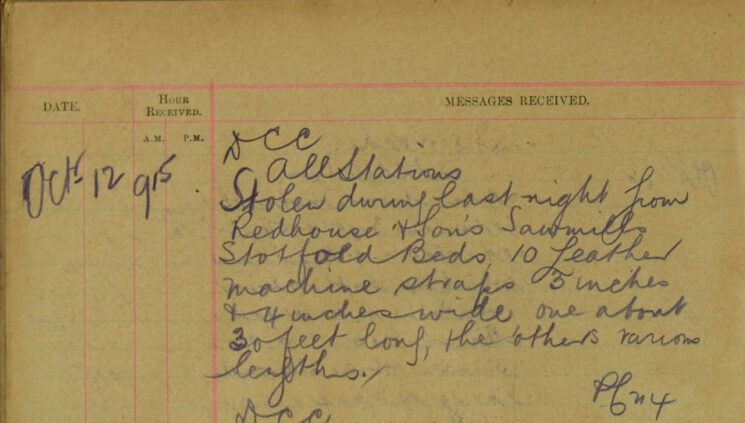 DATE. HOUR RECEIVED. MESSAGES RECEIVED.
A.M. P.M.
Oct 12 915 DCC
All Stations
Stolen during last night from
Redhouse & Son's Sawmills
Stotfold Beds, 10 Leather
machine straps 3 inches
& 4 inches wide one about
30 feet long, the others various
lengths.
DCC